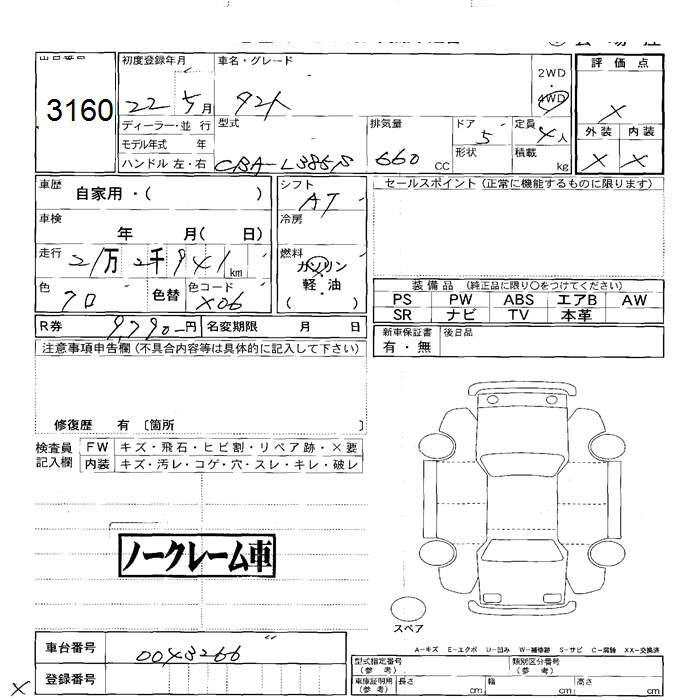 3160
初度登録年月
22 5月
車名・グレード
タント
2WD
4WD
評価点
×
ディーラー・並行
モデル年式 年
ハンドル 左・右
型式
CBA-L385S
排気量
660 CC
ドア
5
形状
定員
4人
積載
kg
外装 内装
× ×
車歴
自家用・( )
シフト
AT
セールスポイント (正常に機能するものに限ります)
車検
年 月( 日)
冷房
走行
21万2千941km
燃料
ガソリン
軽・油
(・)
色
クロ
色替
色コード
X06
装備品 (純正品に限り○をつけてください)
PS PW ABS エアB AW
SR ナビ TV 本革
R券
9,790-円
名変期限 月 日
新車保証書
有・無
後日品
注意事項申告欄(不具合内容等は具体的に記入して下さい)
修復歴 有 〔箇所 〕
検査員
記入欄
FW キズ・飛石・ヒビ割・リペア跡・×要
内装 キズ・汚レ・コゲ・穴・スレ・キレ・破レ
ノークレーム車
スペア
A-キズ E-エクボ U-凹み W-補修跡 S-サビ C-腐蝕 XX-交換済
車台番号
0043266
登録番号
×
型式指定番号
(参考)
類別区分番号
(参考)
車庫証明用
(参考)
長さ cm
幅 cm
高さ cm